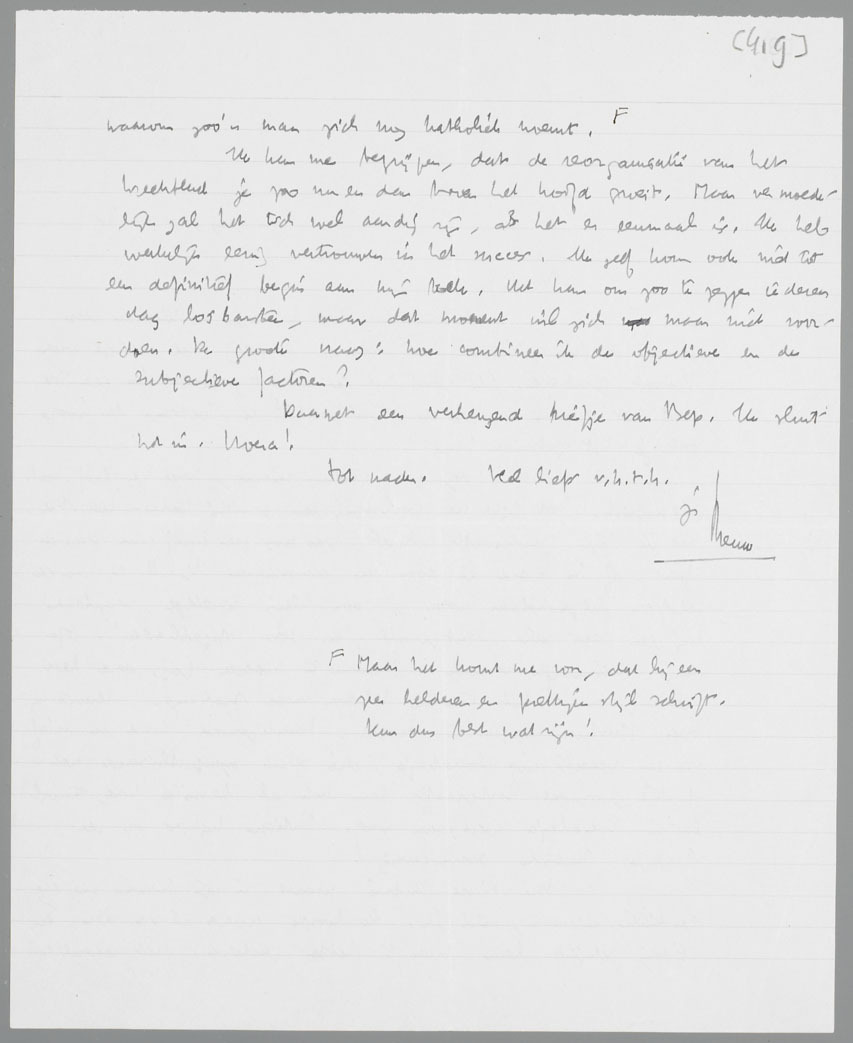 [419]
waarom zoo'n man zich nog katholiek noemt. F
Ik kan me begrijpen, dat de reorganisatie van het
je zoo nu en dan boven het hoofd groeit. Maar vermoede-
lijk zal het toch wel aardig zijn, als het er eenmaal is. Ik heb
werkelijk eenig vertrouwen in het succes. Ik zelf kom ook niet tot
een definitief begin aan mijn boek. Het kan om zoo te zeggen iederen
dag losbarsten, maar dat moment wil zich maar niet voor-
doen. De groote vraag: hoe combineer ik de objectieve en de
subjectieve factoren?
Daarnet een verheugend briefje van Bep. Ik sluit
het in. Hoera!
Tot nader. Veel liefs v.h.t.h.
je Menno
F Maar het komt me voor, dat hij een
zeer helderen en prettigen stijl schrijft.
Kan dus best wat zijn!